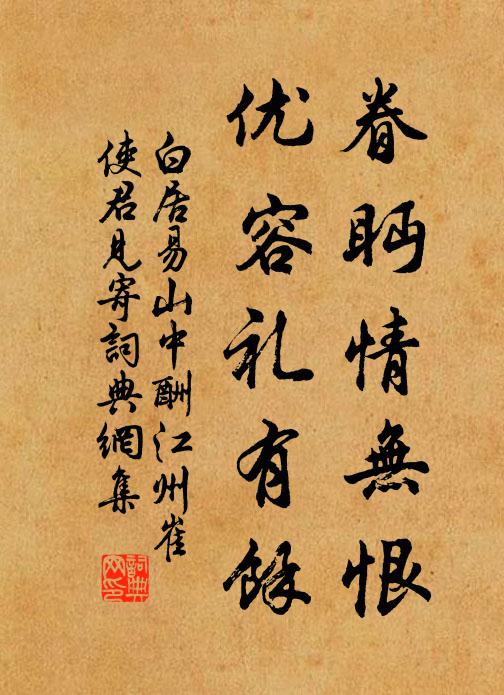 眷眄情無恨
优容礼有餘
白居易山中酬江州崔
使君見寄詞典網集
詞典
网印